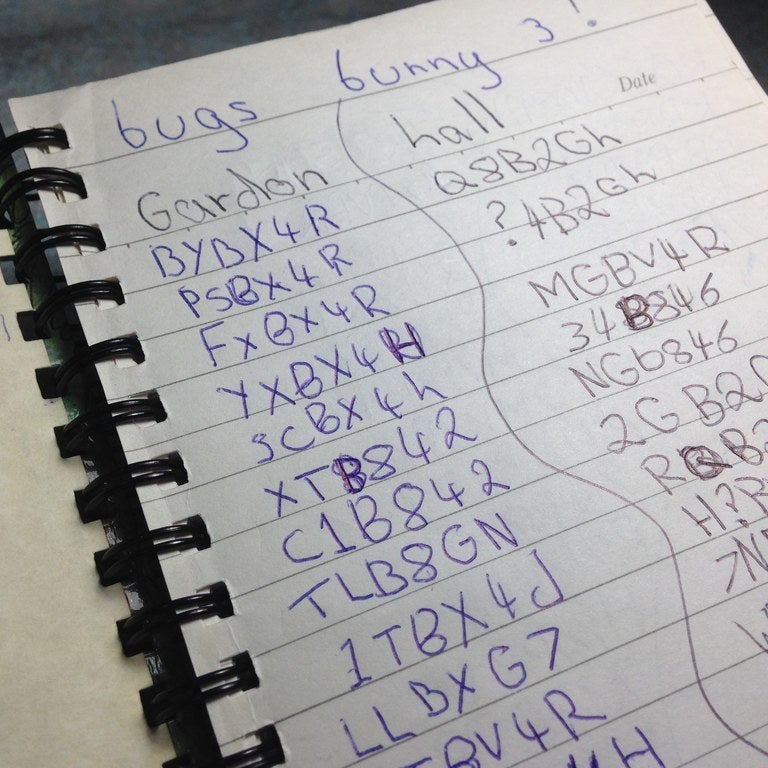 bugs bunny 3!
Date
Gardon
BYBX4R
PSBX4R
FXBX4R
YXBX4H
SCBX4h
XTB842
C1B842
TLB8GN
1TBX4J
LLBXG7
BV4R
hall
Q8B2Gh
?4B2Gh
MGBV4R
34B846
NGb846
2GB2
RQB2
H?B